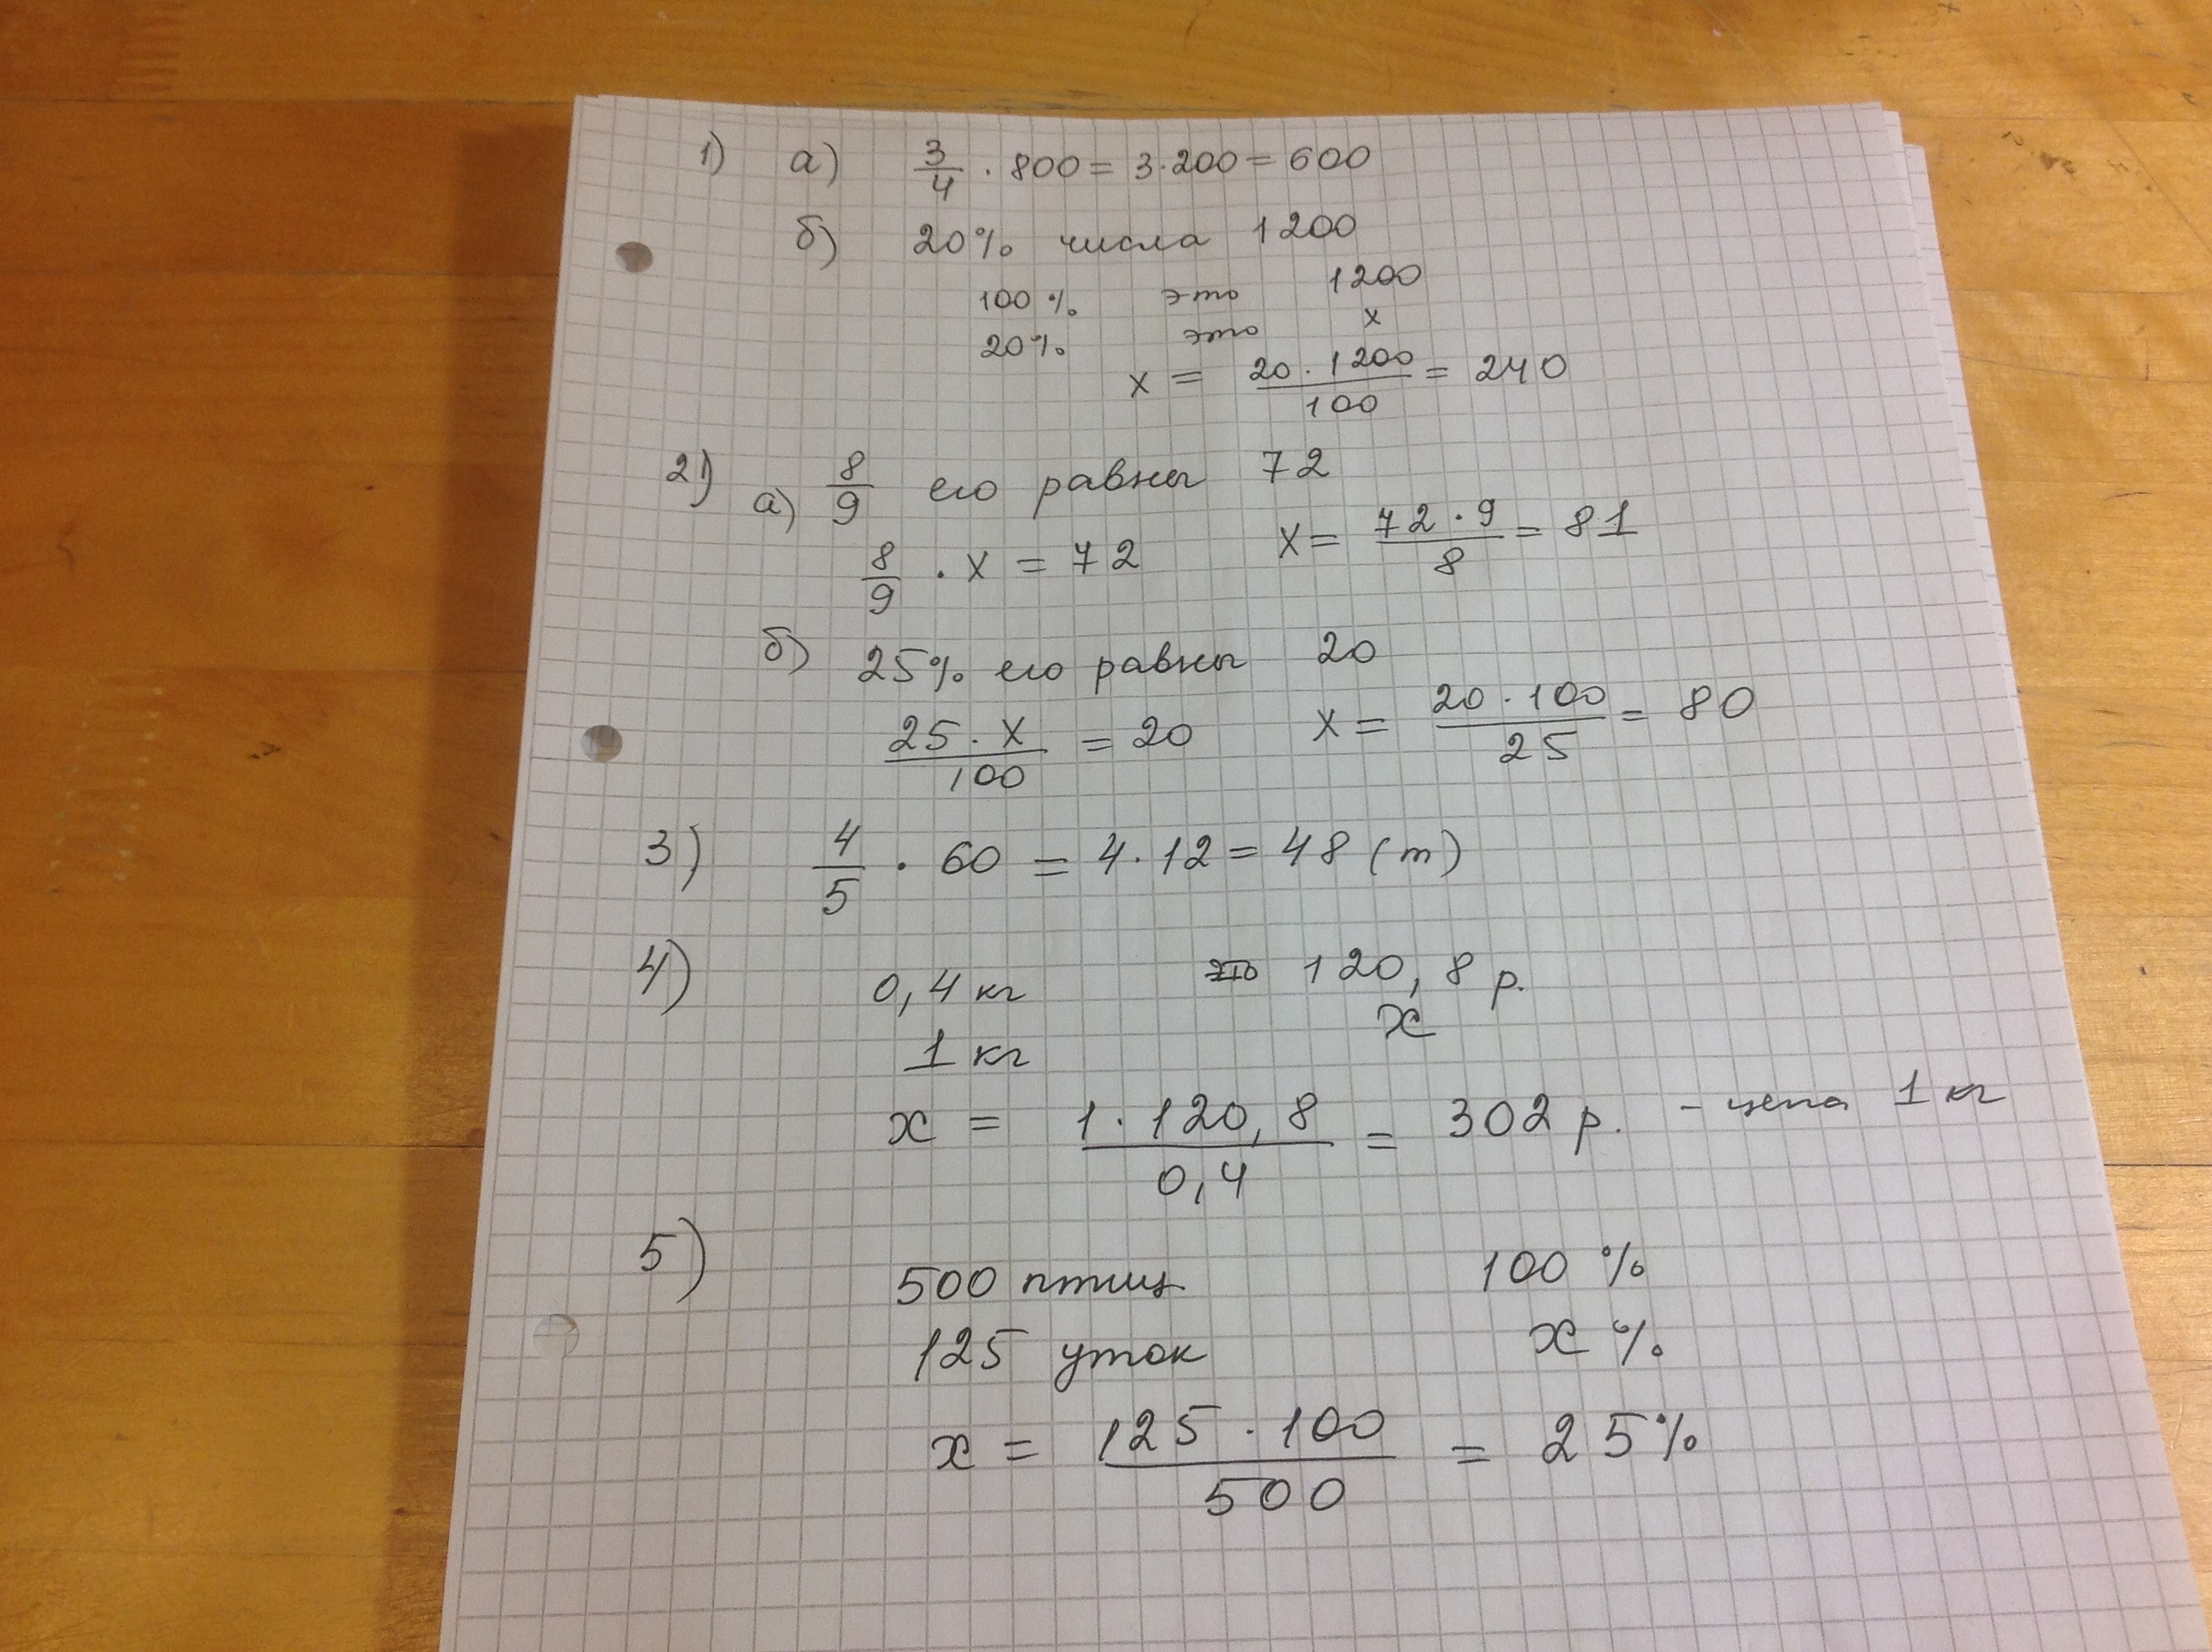 1) а) 3/4 · 800 = 3·200 = 600
б) 20% числа 1200
100% это 1200
20% это x
x = 20·1200/100 = 240
2) а) 8/9 его равны 72
8/9 · x = 72 x = 72·9/8 = 81
б) 25% его равны 20
25·x/100 = 20 x = 20·100/25 = 80
3) 4/5 · 60 = 4·12 = 48 (т)
4) 0,4 кг 120,8 р.
1 кг x
x = 1·120,8/0,4 = 302 р. - цена 1 кг
5) 500 птиц 100 %
125 уток x %
x = 125·100/500 = 25%